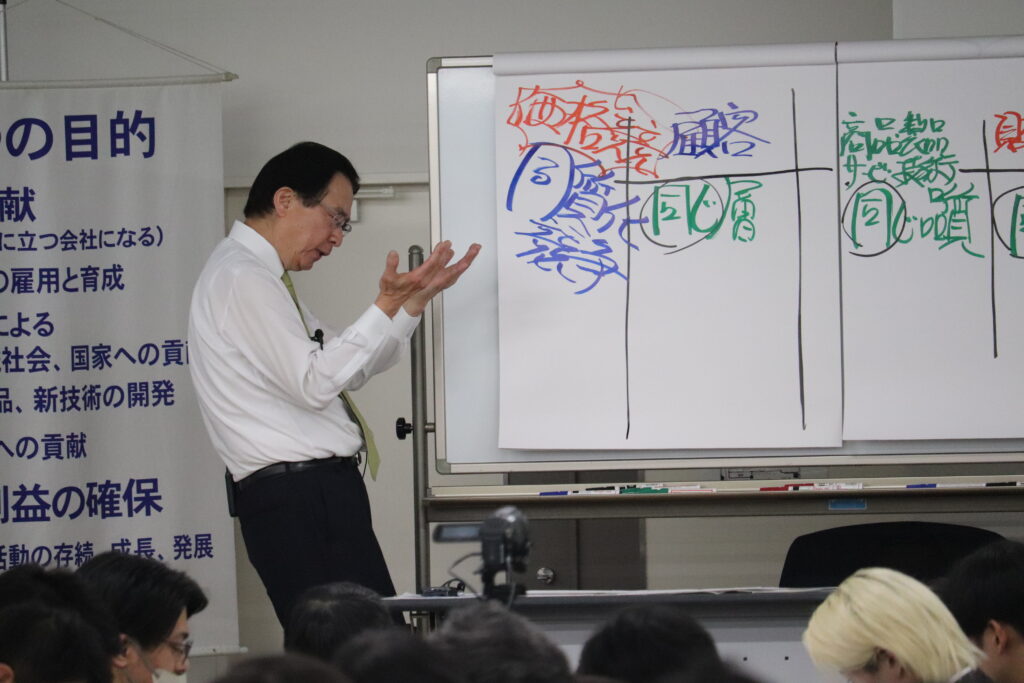 の目的
献
に立つ会社になる)
の雇用と育成
による
社会、国家への貢
品、新技術の開発
への貢献
利益の確保
活動の存続、成長、発展
価格競争
同質化
競争
顧客
同じ層
商品製品
サービス技術
同じ品質